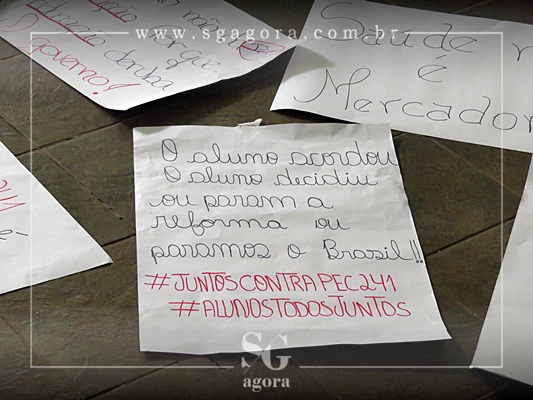 www.sgagora.com.br
não
porque
derruba
governo!
Saúde
é
Mercador
O aluno acordou
O aluno decidiu
ou param a
reforma ou
paramos o Brasil!!
#JUNTOSCONTRAPEC241
#ALUNOSTODOSJUNTOS
é
SG
agora